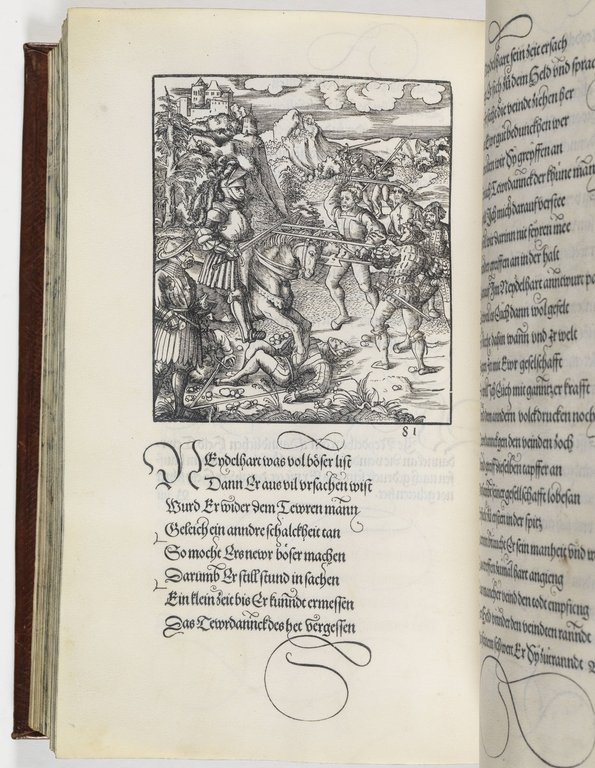 81
NEydelhart was vol böser list
Dann Er aus vil vrsachen wist
Wurd Er wider dem Tewren mann
Geleich ein anndre schalckheit tan
So mocht Ers newr böser machen
Darumb Er still stund in sachen
Ein klein zeit bis Er kunndt ermessen
Das Tewrdannck des het vergessen
sein zeit ersach
zu dem Held vnd sprac
die veindt ziehen her
gut bedunckhen wer
wir Sy greyffen an
Tewrdannck der khüne man
Ich mich darauf verstee
wir darinn nit feyren mee
greffen an in der halt
Im Neydelhart anntwurt
Euch dann wol gefelt
dahin wann vnd Ir welt
mit Ewr geselschafft
Ich Euch mit ganntzer krafft
dem andern volck drucken noch
den veinden
dieselben tapffer an
gesellschafft lobesan
in der spitz
Er sein manheit vnd
hart angieng
veind den todt empfieng
den veindten ranndt
schwert Er Sy zurranndt